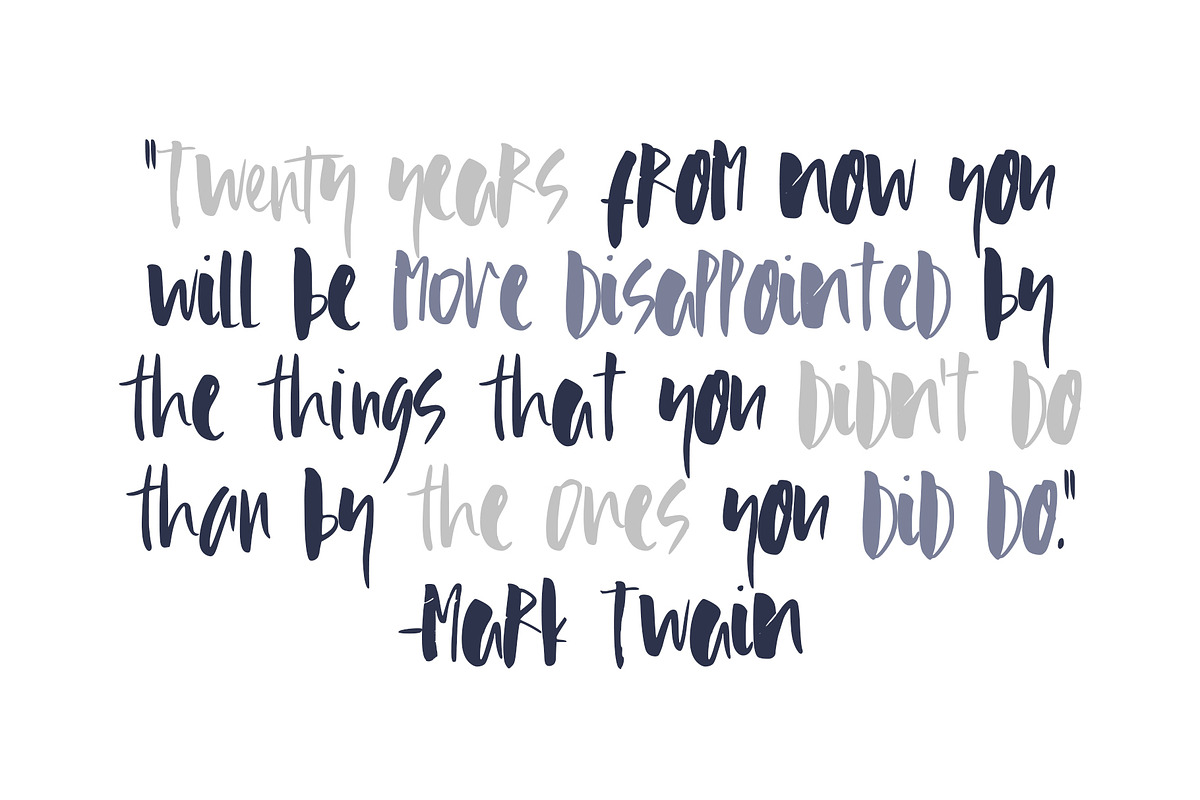 "Twenty years from now you
will be more disappointed by
the things that you didn't do
than by the ones you did do."
-Mark Twain